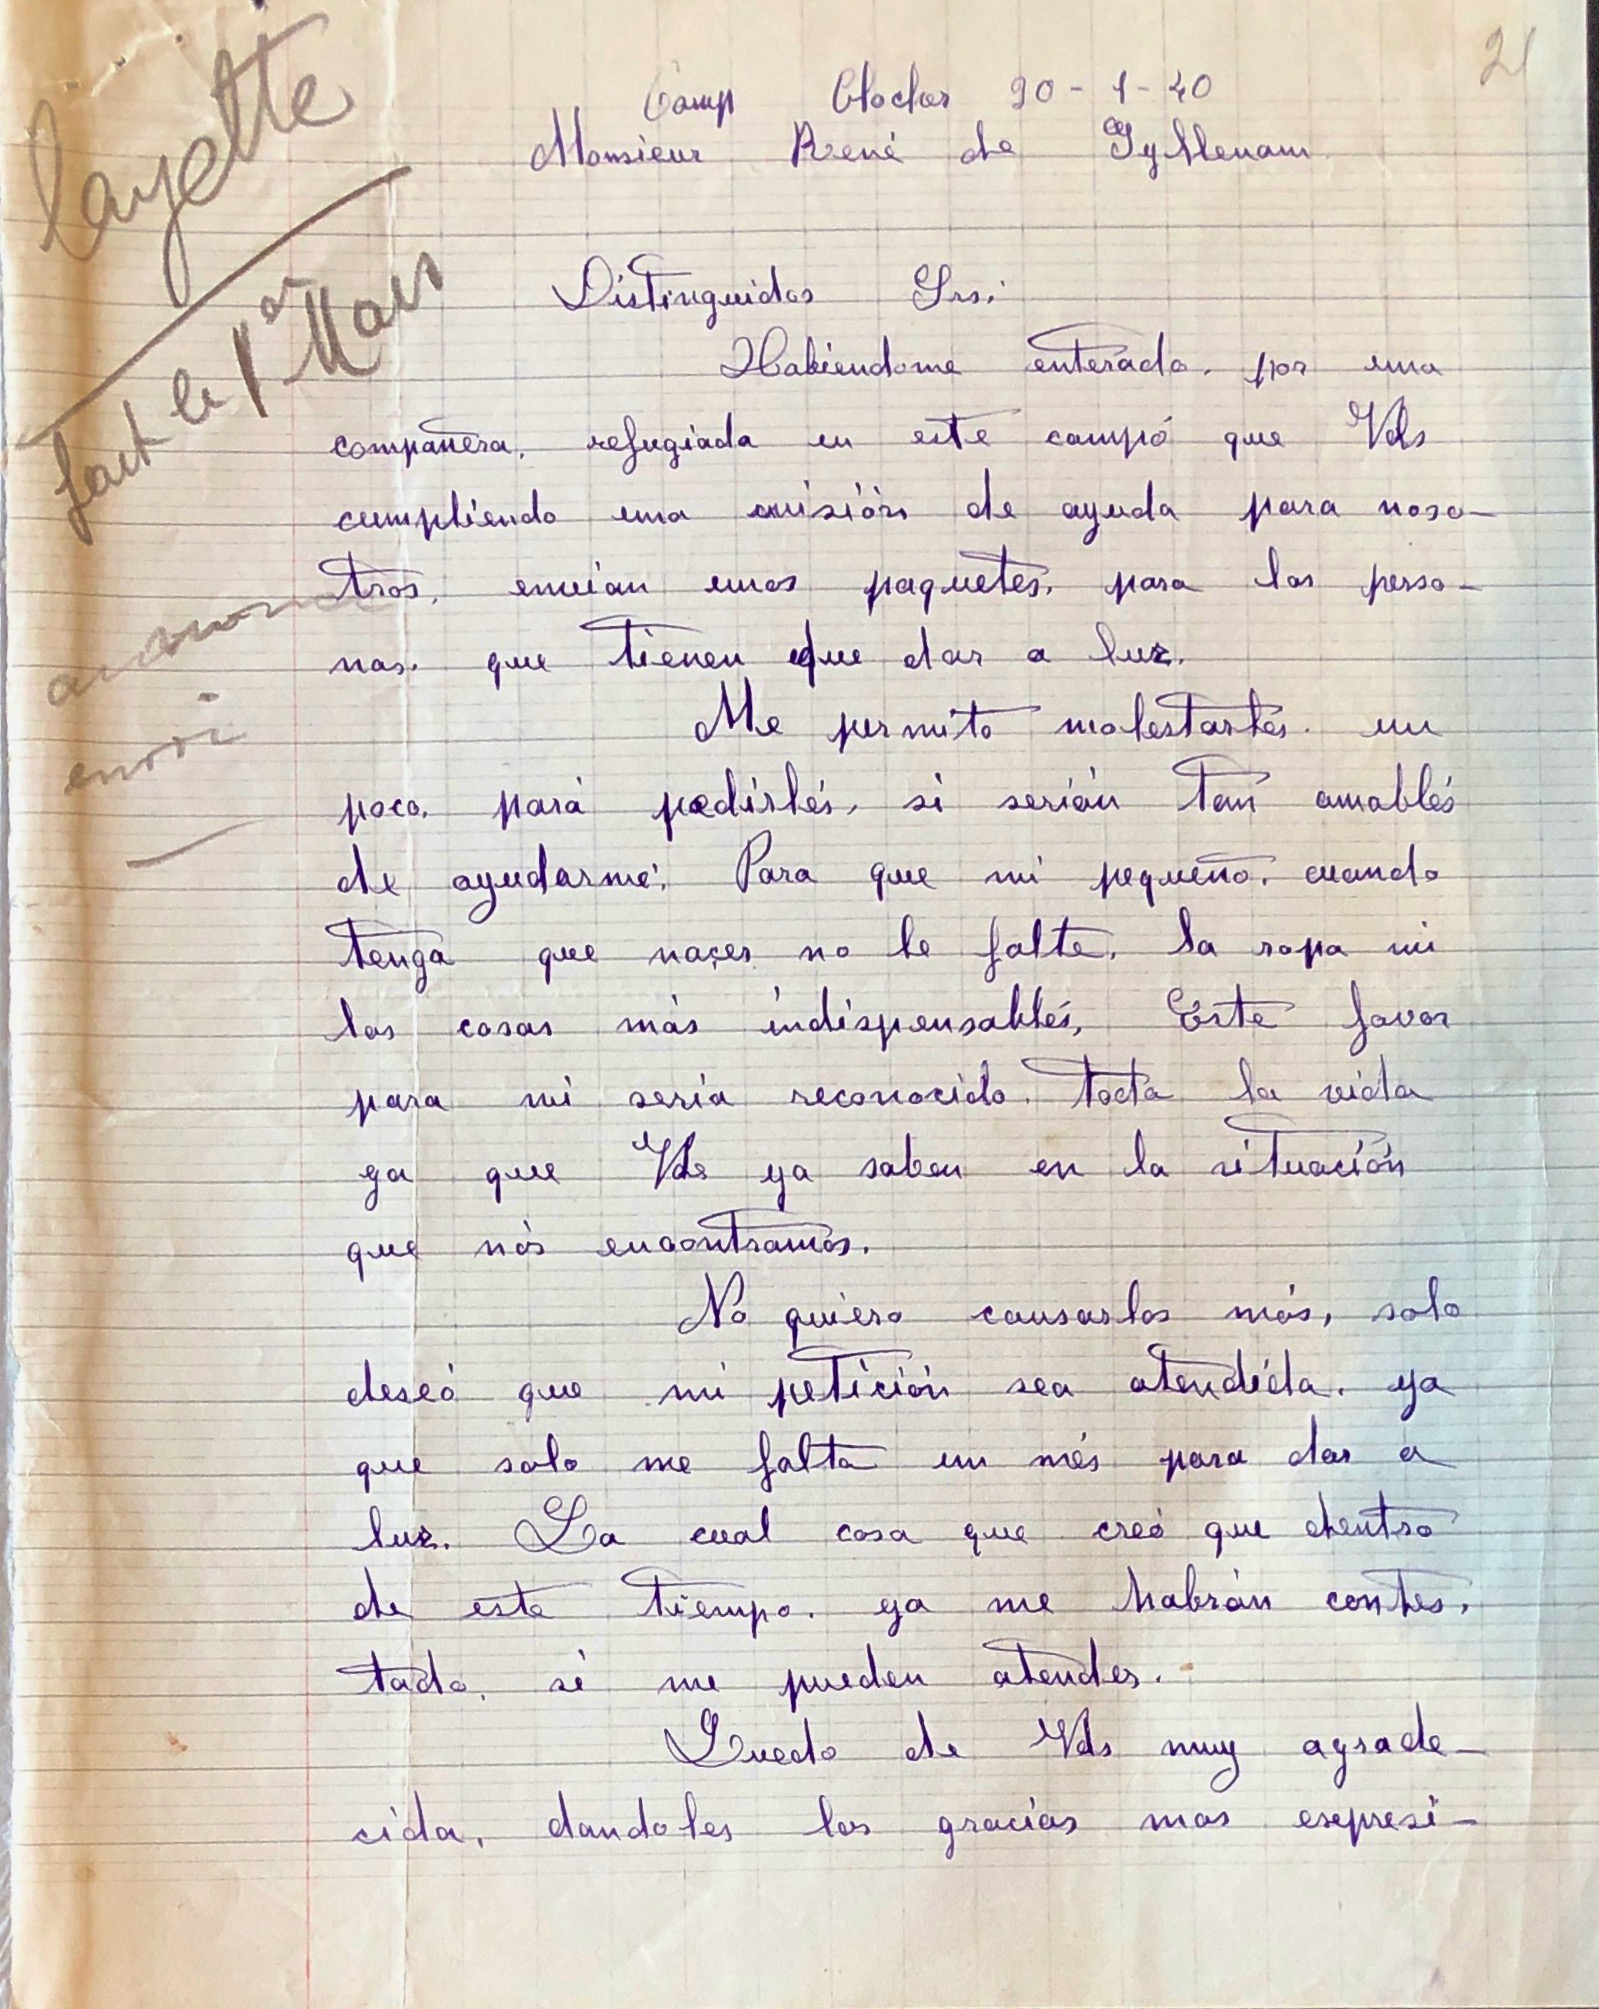 21
layette
Camp Cloclos 20-1-40
Monsieur René de
fait le 1er Mars
Distinguidos Srs:
Habiendome enterado. por una
compañera. refugiada en este campó que Vds
cumpliendo una misión de ayuda para noso-
tros. envian unos paquetes. para las perso-
nas. que tienen que dar a luz.
annoncé
envoi
Me permito molestarles. un
poco. pará pedirlés, si serián tan amablés
de ayudarme. Para que mi pequeño. cuando
tenga que naçer no le falte. la ropa ni
las cosas más indispensablés, Este favor
para mi seria reconocido. toda la vida
ya que Vds ya saben en la situación
que nós encontramos.
No quiero causarlos más, solo
deseó que mi petición sea atendida. ya
que solo me falta un més para dar a
luz. La cual cosa que creó que dentro
de este tiempo. ya me habrán contes.
tado. si me pueden atender.
Quedo de Vds muy agrade-
cida. dandoles las gracias mas esepresi-